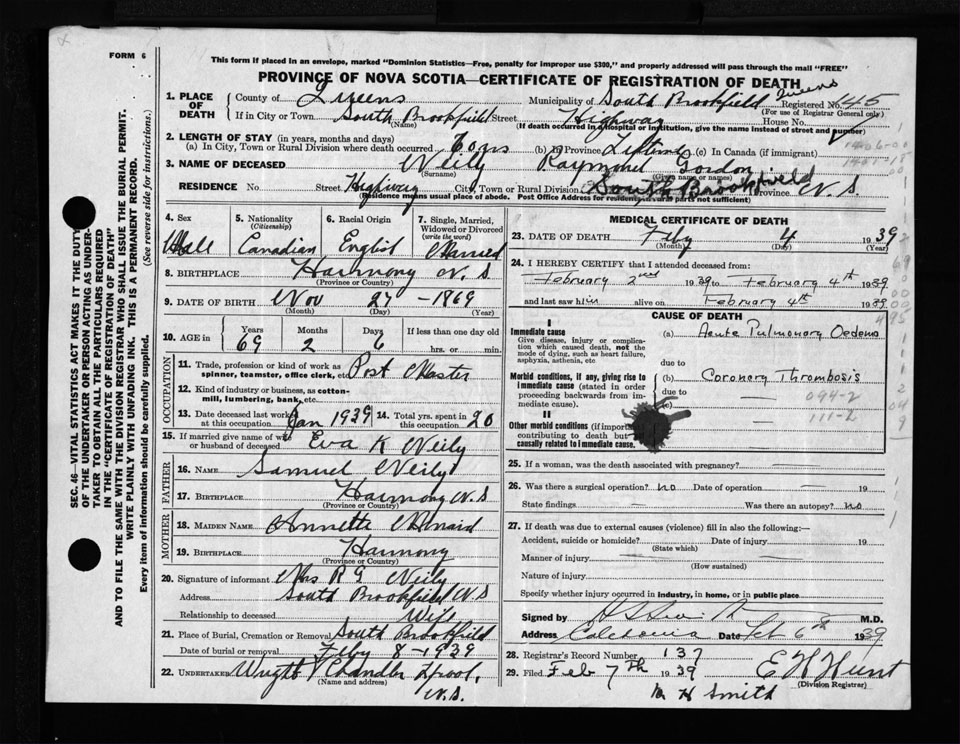 FORM 6
This form if placed in an envelope, marked "Dominion Statistics—Free, penalty for improper use $300," and properly addressed will pass through the mail "FREE"
PROVINCE OF NOVA SCOTIA—CERTIFICATE OF REGISTRATION OF DEATH
SEC. 46—VITAL STATISTICS ACT MAKES IT THE DUTY
OF THE UNDERTAKER OR PERSON ACTING AS UNDER-
TAKER TO OBTAIN ALL THE PARTICULARS REQUIRED
IN THE "CERTIFICATE OF REGISTRATION OF DEATH"
AND TO FILE THE SAME WITH THE DIVISION REGISTRAR WHO SHALL ISSUE THE BURIAL PERMIT.
WRITE PLAINLY WITH UNFADING INK. THIS IS A PERMANENT RECORD.
Every item of information should be carefully supplied. (See reverse side for instructions.)
1. PLACE OF DEATH County of Queens Municipality of South Brookfield Queens Registered No. 145
(For use of Registrar General only)
If in City or Town South Brookfield Street Highway House No.
(Name) (If death occurred in a hospital or institution, give the name instead of street and number)
2. LENGTH OF STAY (in years, months and days)
(a) In City, Town or Rural Division where death occurred (b) In Province Lifetime (c) In Canada (if immigrant)
3. NAME OF DECEASED Veily Raymond Gordon
(Surname) (Given name or names)
RESIDENCE No. Street Highway City, Town or Rural Division South Brookfield Province N.S.
(Residence means usual place of abode. Post Office Address for residents of rural parts not sufficient)
4. Sex Male
5. Nationality (Citizenship) Canadian
6. Racial Origin English
7. Single, Married, Widowed or Divorced (write the word) Married
8. BIRTHPLACE Harmony N.S
(Province or Country)
9. DATE OF BIRTH Nov 27 – 1869
(Month) (Day) (Year)
10. AGE in Years 69 Months 2 Days 6 If less than one day old hrs. or min.
OCCUPATION
11. Trade, profession or kind of work as spinner, teamster, office clerk, etc. Post Master
12. Kind of industry or business, as cotton-mill, lumbering, bank, etc.
13. Date deceased last worked at this occupation Jan 1939 14. Total yrs. spent in this occupation 20
15. If married give name of wife or husband of deceased Eva K Veily
FATHER
16. NAME Samuel Veily
17. BIRTHPLACE Harmony N.S
(Province or Country)
MOTHER
18. MAIDEN NAME Annette
19. BIRTHPLACE Harmony
(Province or Country)
20. Signature of informant Mrs R G Veily
Address South Brookfield N.S
Relationship to deceased Wife
21. Place of Burial, Cremation or Removal South Brookfield
Date of burial or removal Feby 8 - 1939
22. UNDERTAKER Wright Chandler L'pool, N.S.
(Name and address)
MEDICAL CERTIFICATE OF DEATH
23. DATE OF DEATH Feby 4 1939
(Month) (Day) (Year)
24. I HEREBY CERTIFY that I attended deceased from:
February 2nd 1939 to February 4th 1939
and last saw him alive on February 4th 1939
CAUSE OF DEATH
I
Immediate cause (a) Acute Pulmonary Oedema
Give disease, injury or complication which caused death, not the mode of dying, such as heart failure, asphyxia, asthenia, etc.
due to
Morbid conditions, if any, giving rise to immediate cause (stated in order proceeding backwards from immediate cause). (b) Coronary Thrombosis
due to 094-2
(c)
111-2
II
Other morbid conditions (if important) contributing to death but not causally related to immediate cause.
25. If a woman, was the death associated with pregnancy? —
26. Was there a surgical operation? no Date of operation — 19
State findings — Was there an autopsy? no
27. If death was due to external causes (violence) fill in also the following:—
Accident, suicide or homicide? Date of injury 19
(State which)
Manner of injury
(How sustained)
Nature of injury
Specify whether injury occurred in industry, in home, or in public place
Signed by M.D.
Address Caledonia Date Feb 6th 1939
28. Registrar's Record Number 137
29. Filed Feb 7th 1939 E H Hunt
(Division Registrar)
H Smith